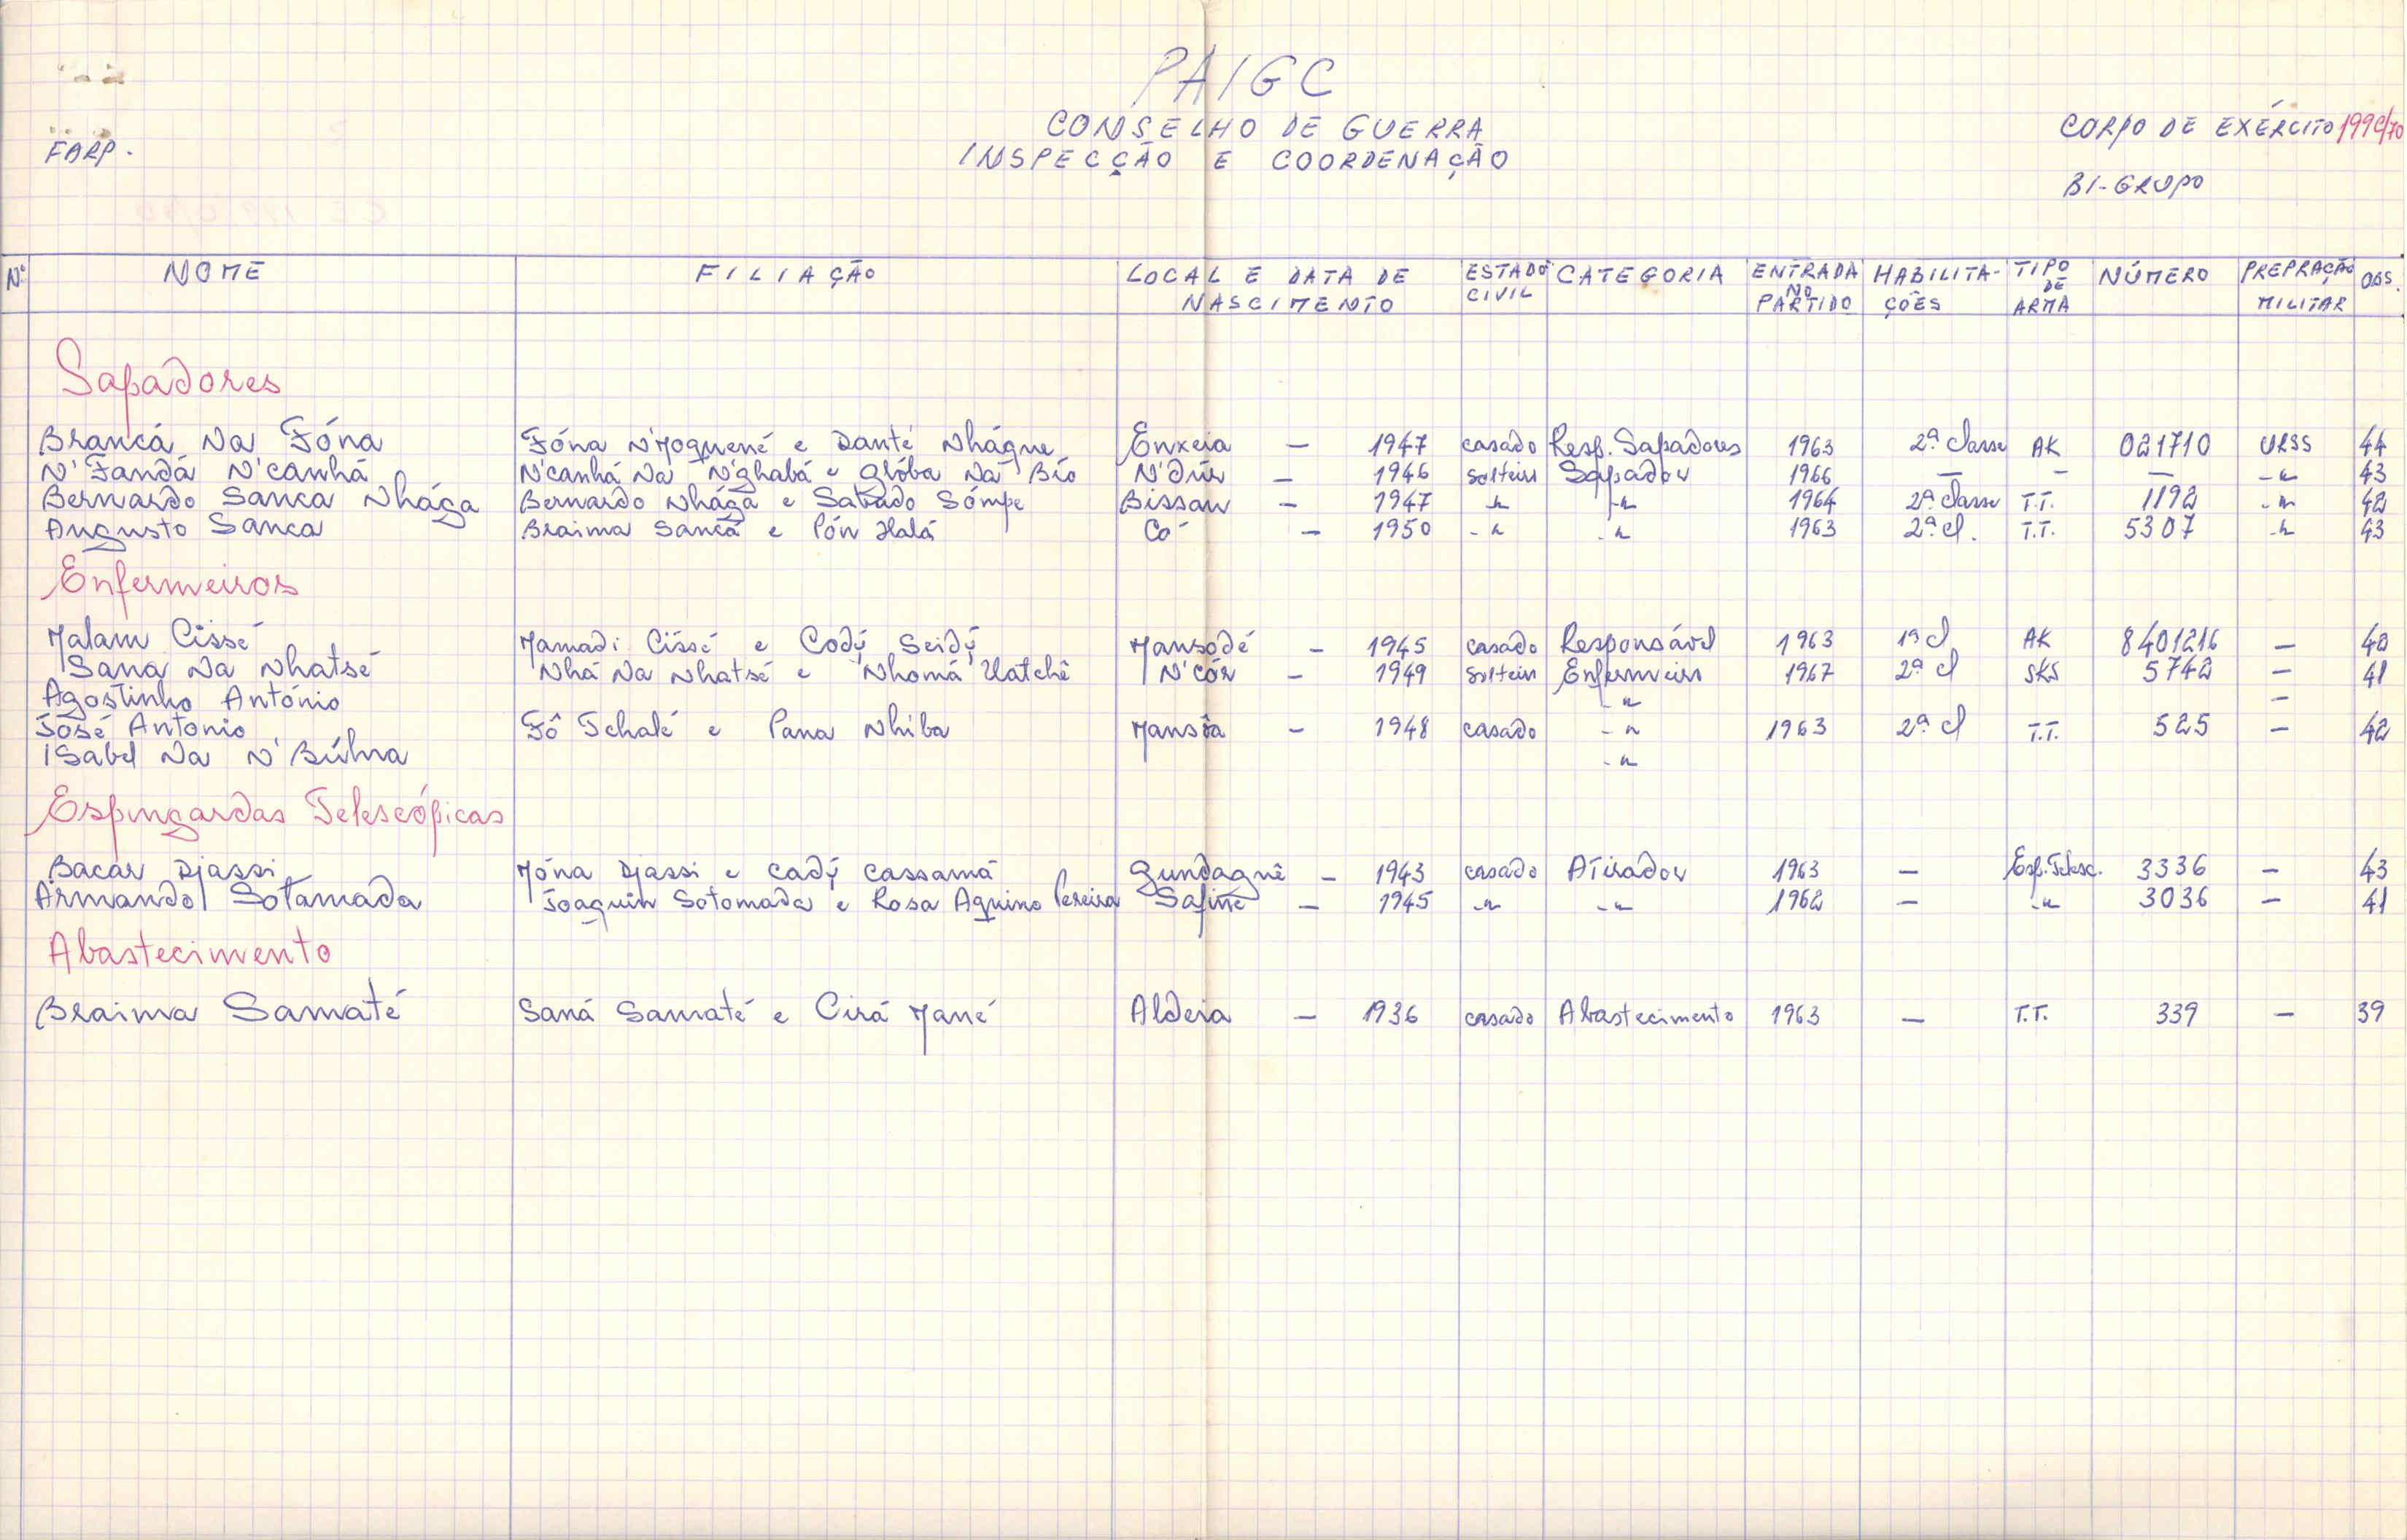 PAIGC
CONSELHO DE GUERRA
INSPECÇÃO E COORDENAÇÃO
FARP.
CORPO DE EXÉRCITO 199C/70
BI-GRUPO
Nº NOME FILIAÇÃO LOCAL E DATA DE NASCIMENTO ESTADO CIVIL CATEGORIA ENTRADA NO PARTIDO HABILITA-ÇÕES TIPO DE ARMA NÚMERO PREPRAÇÃO MILITAR OBS.
Sapadores
Brancá Na Fóna Fóna N'Moquené e Danté Nhágue Enxeia — 1947 casado Resp. Sapadores 1963 2ª classe AK 021710 URSS 44
N'Fandá N'canhá N'canhá Na N'ghabá e Glóba Na Bío N'dúr — 1946 solteiro Sapador 1966 — — — -"- 43
Bernardo Sanca Nhága Bernardo Nhága e Sabado Sómpe Bissau — 1947 -"- -"- 1964 2ª classe T.T. 1192 -"- 42
Augusto Sanca Braima Sancá e Pón Halá Có — 1950 -"- -"- 1963 2ª cl. T.T. 5307 -"- 43
Enfermeiros
Malam Cissé Mamadi Cissé e Cody Seidy Mansodé — 1945 casado Responsável 1963 1ª cl AK 8401216 — 40
Sana Na Nhatsé Nhá Na Nhatsé e Nhomá Uatchê N'Cór — 1949 solteiro Enfermeiro 1967 2ª cl SKS 5742 — 41
Agostinho António -"- —
José Antonio Fô Tchalé e Pana Nhiba Mansôa — 1948 casado -"- 1963 2ª cl T.T. 525 — 42
Isabel Na N'Búlna -"-
Espingardas Telescópicas
Bacar Djassi Móna Djassi e Cady Cassamá Gundaguê — 1943 casado Atirador 1963 — Esp. Telesc. 3336 — 43
Armando Sotamada Joaquin Sotomada e Rosa Aquino Pereira Safime — 1945 -"- -"- 1962 — -"- 3036 — 41
Abastecimento
Braima Samaté Saná Samaté e Cirá Mané Aldeia — 1936 casado Abastecimento 1963 — T.T. 339 — 39